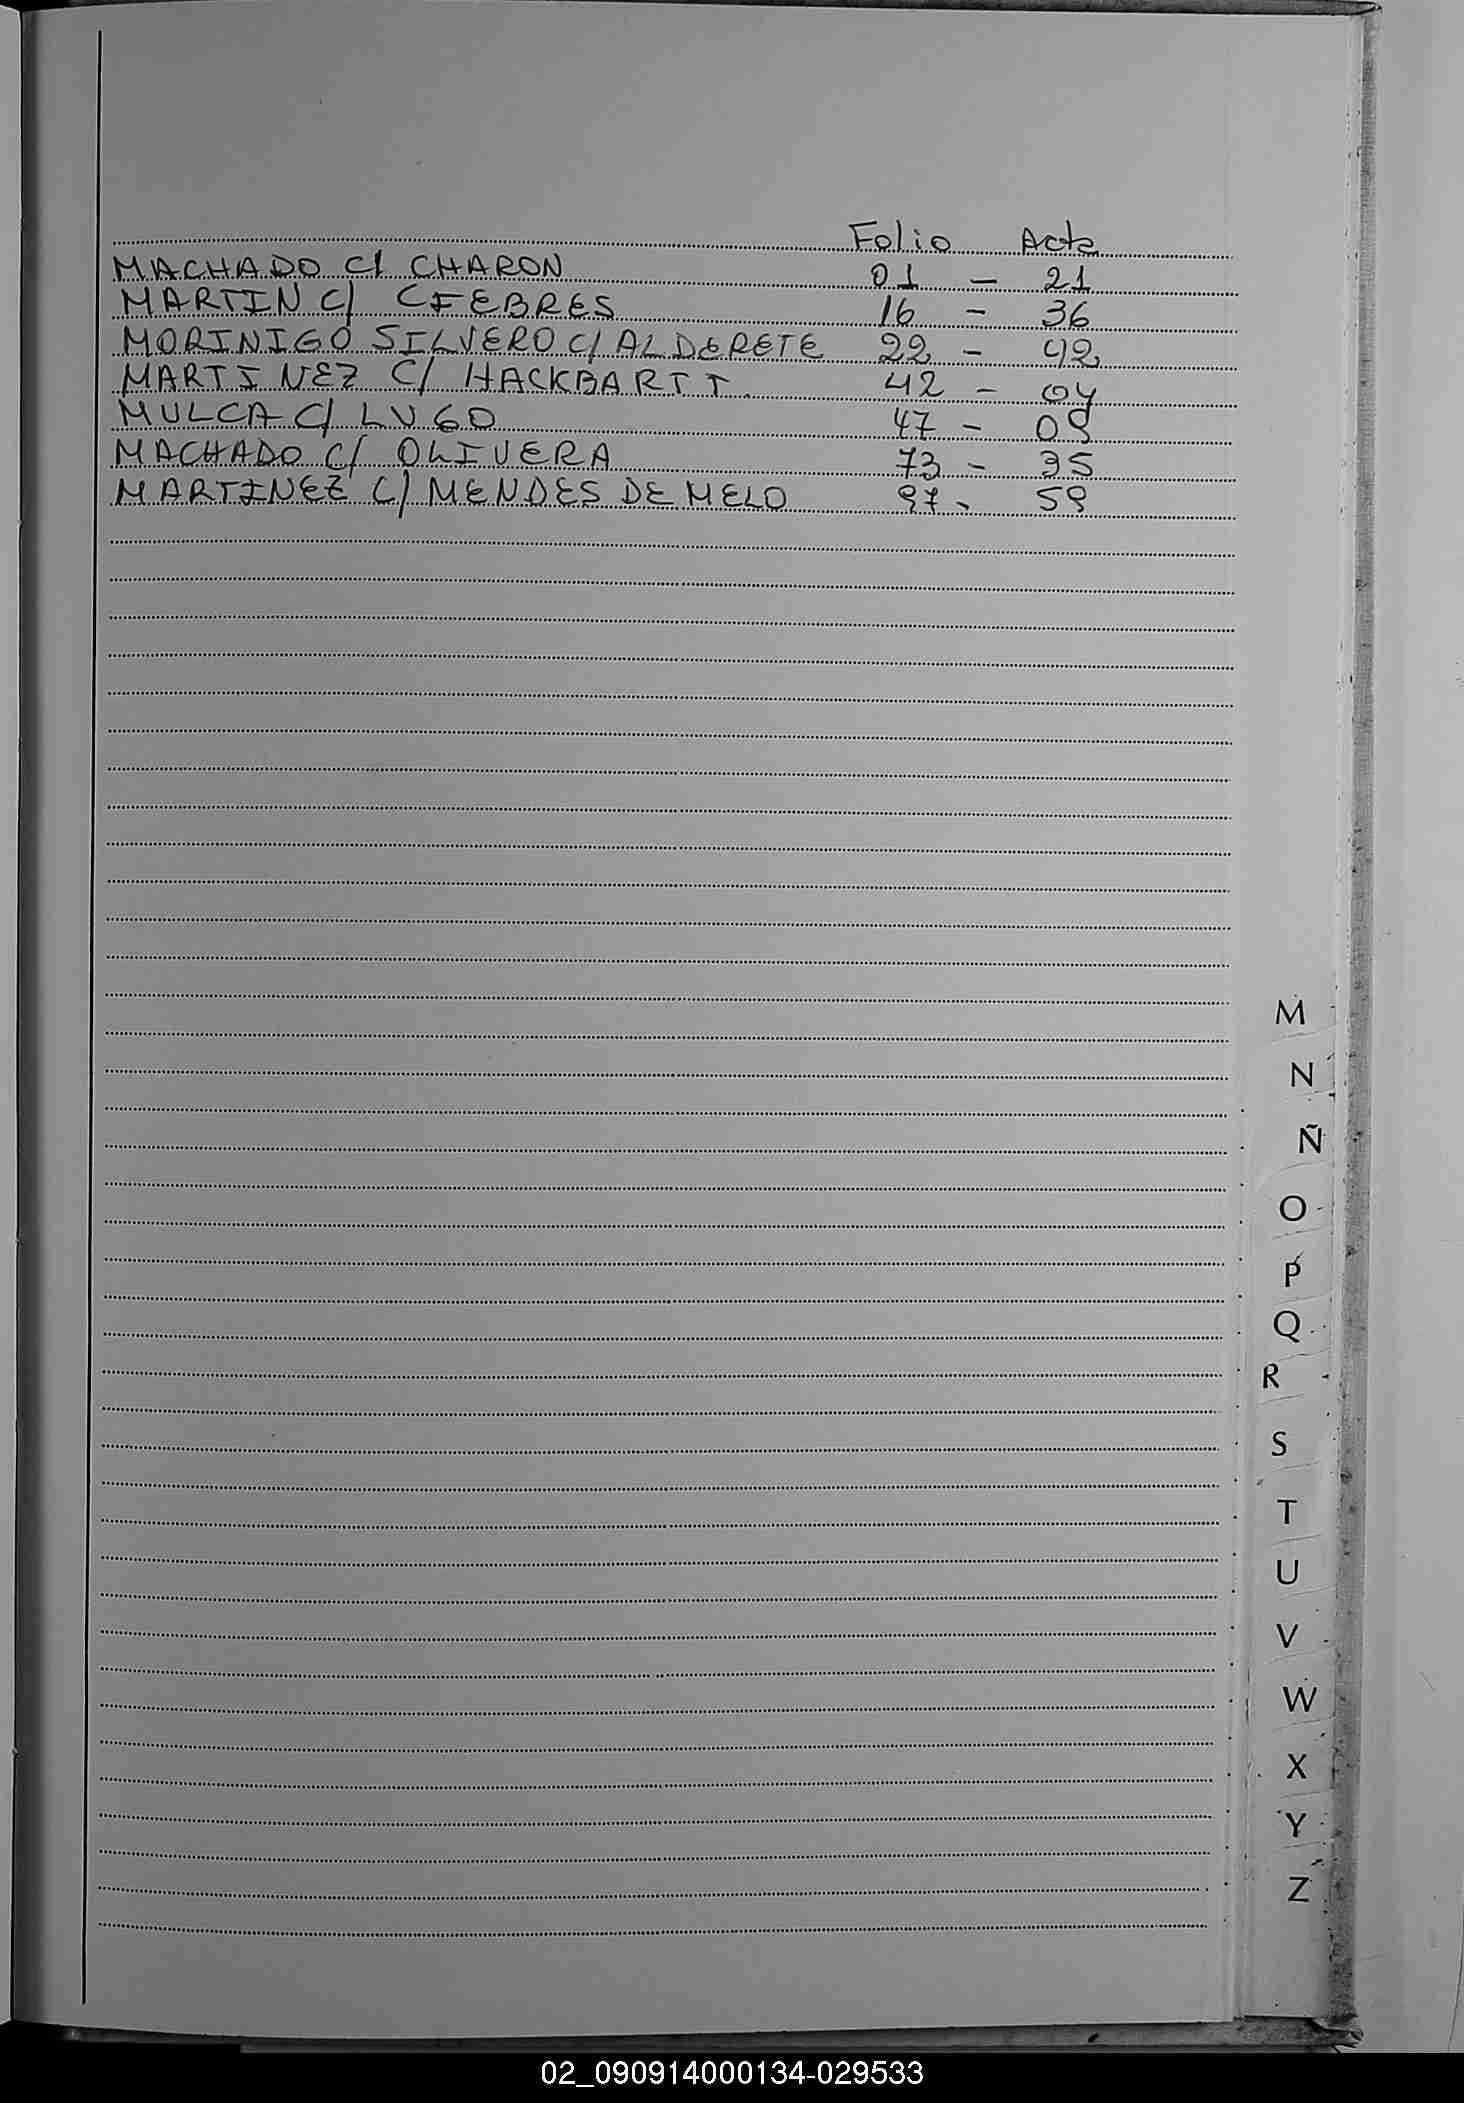 Folio Acta
MACHADO C/ CHARON 01 - 21
MARTIN C/ CFEBRES 16 - 36
MORINIGO SILVERO C/ ALDERETE 22 - 42
MARTINEZ C/ HACKBARTT. 42 - 04
MULCA C/ LUGO 47 - 09
MACHADO C/ OLIVERA 73 - 35
MARTINEZ C/ MENDES DE MELO 97 - 59
M
N
Ñ
O
P
Q
R
S
T
U
V
W
X
Y
Z
02_090914000134-029533